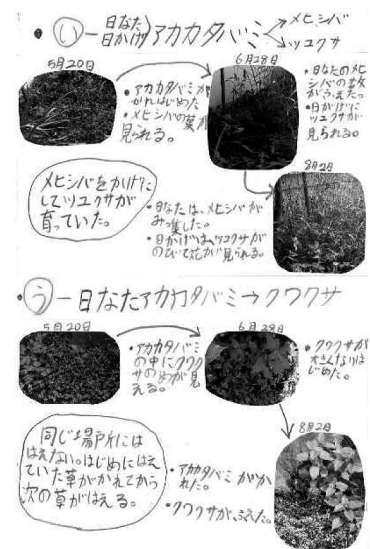 ・い-日なた
日かげ
アカカタバミ
メヒシバ
ツユクサ
5月20日
・アカカタバミが
かれはじめた
・メヒシバの葉が
見られる。
6月28日
・日なたのメヒ
シバの数
がふえた。
・日かげに
ツユクサが
見られる。
メヒシバをかげに
してツユクサが
育っていた。
・日なたは、メヒシバが
みっ集した。
・日かげは、ツユクサが
のびて花が見られる。
8月2日
・う-日なたアカカタバミ→クワクサ
5月20日
・アカカタバミ
の中にクワク
サのめが見
える。
6月28日
・クワクサが
大きくなりは
じめた。
同じ場所には
はえない。はじめにはえ
ていた草がかれてから
次の草がはえる。
・アカカタバミがか
れた。
・クワクサが、ふえた。
8月2日